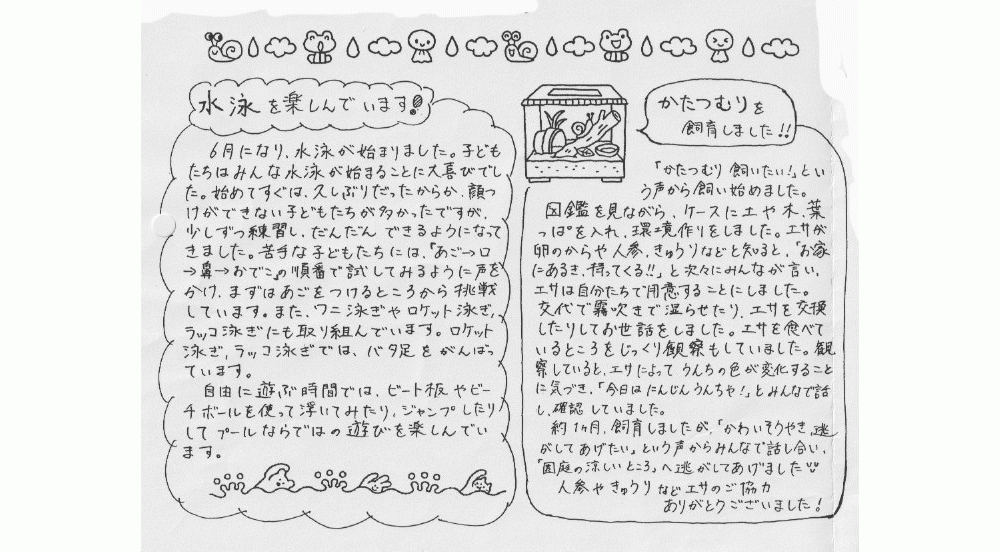 水泳を楽しんでいます!
6月になり、水泳が始まりました。子ども
たちはみんな水泳が始まることに大喜びでし
た。始めてすぐは、久しぶりだったからか、顔つ
けができない子どもたちが多かったですが、
少しずつ練習し、だんだんできるようになって
きました。苦手な子どもたちには、「あご→口
→鼻→おでこ」の順番で試してみるように声を
かけ、まずはあごをつけるところから挑戦
しています。また、ワニ泳ぎやロケット泳ぎ、
ラッコ泳ぎにも取り組んでいます。ロケット
泳ぎ、ラッコ泳ぎでは、バタ足をがんばっ
ています。
自由に遊ぶ時間では、ビート板やビー
チボールを使って浮いてみたり、ジャンプしたり
してプールならではの遊びを楽しんでい
ます。
かたつむりを
飼育しました!!
「かたつむり飼いたい!」とい
う声から飼い始めました。
図鑑を見ながら、ケースに土や木、葉
っぱを入れ、環境作りをしました。エサが
卵のからや人参、きゅうりなどと知ると、「お家
にあるき、待ってくる!!」と次々にみんなが言い、
エサは自分たちで用意することにしました。
交代で霧吹きで湿らせたり、エサを交換
したりしてお世話をしました。エサを食べて
いるところをじっくり観察もしていました。観
察していると、エサによってうんちの色が変化すること
に気づき、「今日はにんじんうんちや!」とみんなで話
し、確認していました。
約1ヶ月、飼育しましたが、「かわいそうやき、逃
がしてあげたい」という声からみんなで話し合い、
「園庭の涼しいところ」へ逃がしてあげました
人参やきゅうりなどエサのご協力
ありがとうございました!